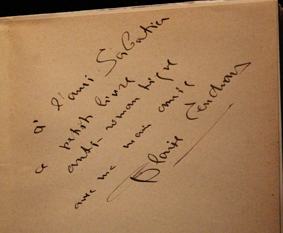 à l'ami Sabatier
ce petit livre
anti-roman nègre
avec ma main amie
Blaise Cendrars